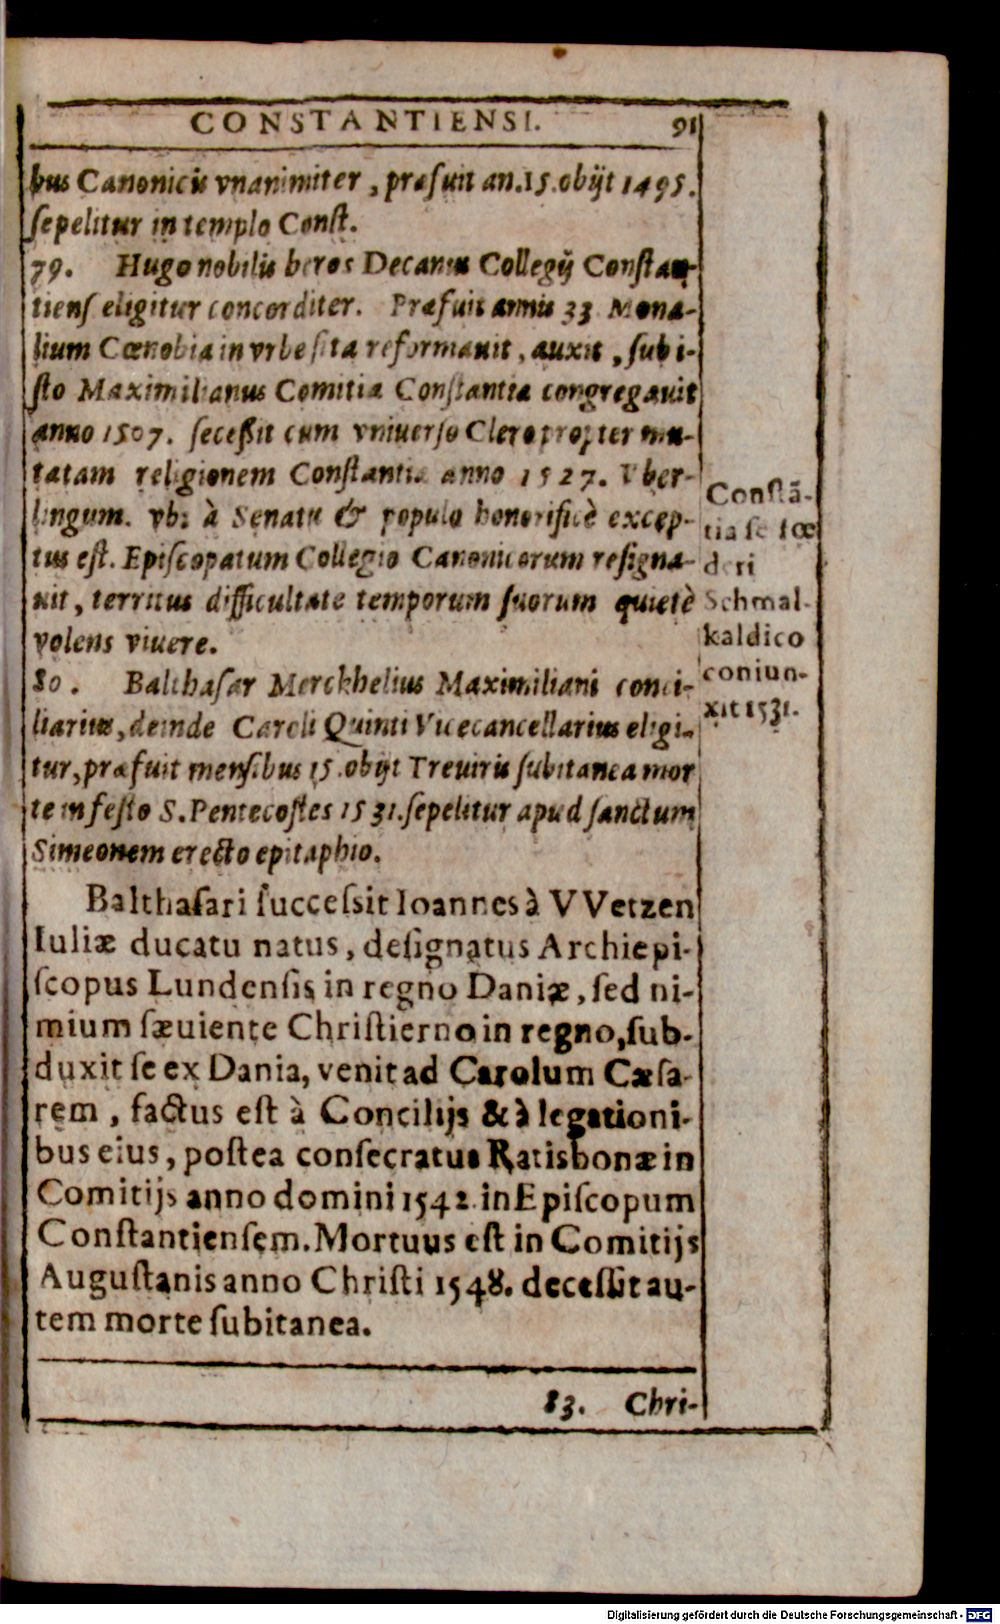 CONSTANTIENSI. 91
bus Canonicis vnanimiter, præfuit an.15.obijt 1495.
sepelitur in templo Const.
79. Hugo nobilis heros Decanus Collegij Constan-
tiens eligitur concorditer. Præfuit annis 33 Mona-
lium Cœnobia in vrbe sita reformauit, auxit, sub i-
sto Maximilianus Comitia Constantia congregauit
anno 1507. secessit cum vniuerso Clero propter mu-
tatam religionem Constantia anno 1527. Vber-
lingum. vbi à Senatu & populo honorificè excep-
tus est. Episcopatum Collegio Canonicorum resigna-
uit, territus difficultate temporum suorum quietè
volens viuere.
80. Balthasar Merckhelius Maximiliani consi-
liarius, deinde Caroli Quinti Vicecancellarius eligi-
tur, præfuit mensibus 15. obijt Treuiris subitanea mor
te in festo S. Pentecostes 1531. sepelitur apud sanctum
Simeonem erecto epitaphio.
Balthasari successit Ioannes à VVetzen
Iuliæ ducatu natus, designatus Archiepi-
scopus Lundensis in regno Daniæ, sed ni-
mium sæuiente Christierno in regno, sub-
duxit se ex Dania, venit ad Carolum Cæsa-
rem, factus est à Concilijs & à legationi-
bus eius, postea consecratus Ratisbonæ in
Comitijs anno domini 1542. in Episcopum
Constantiensem. Mortuus est in Comitijs
Augustanis anno Christi 1548. decessit au-
tem morte subitanea.
83. Chri-
Constã-
tia se fœ
deri
Schmal-
kaldico
coniun-
xit 1531.
Digitalisierung gefördert durch die Deutsche Forschungsgemeinschaft - DFG